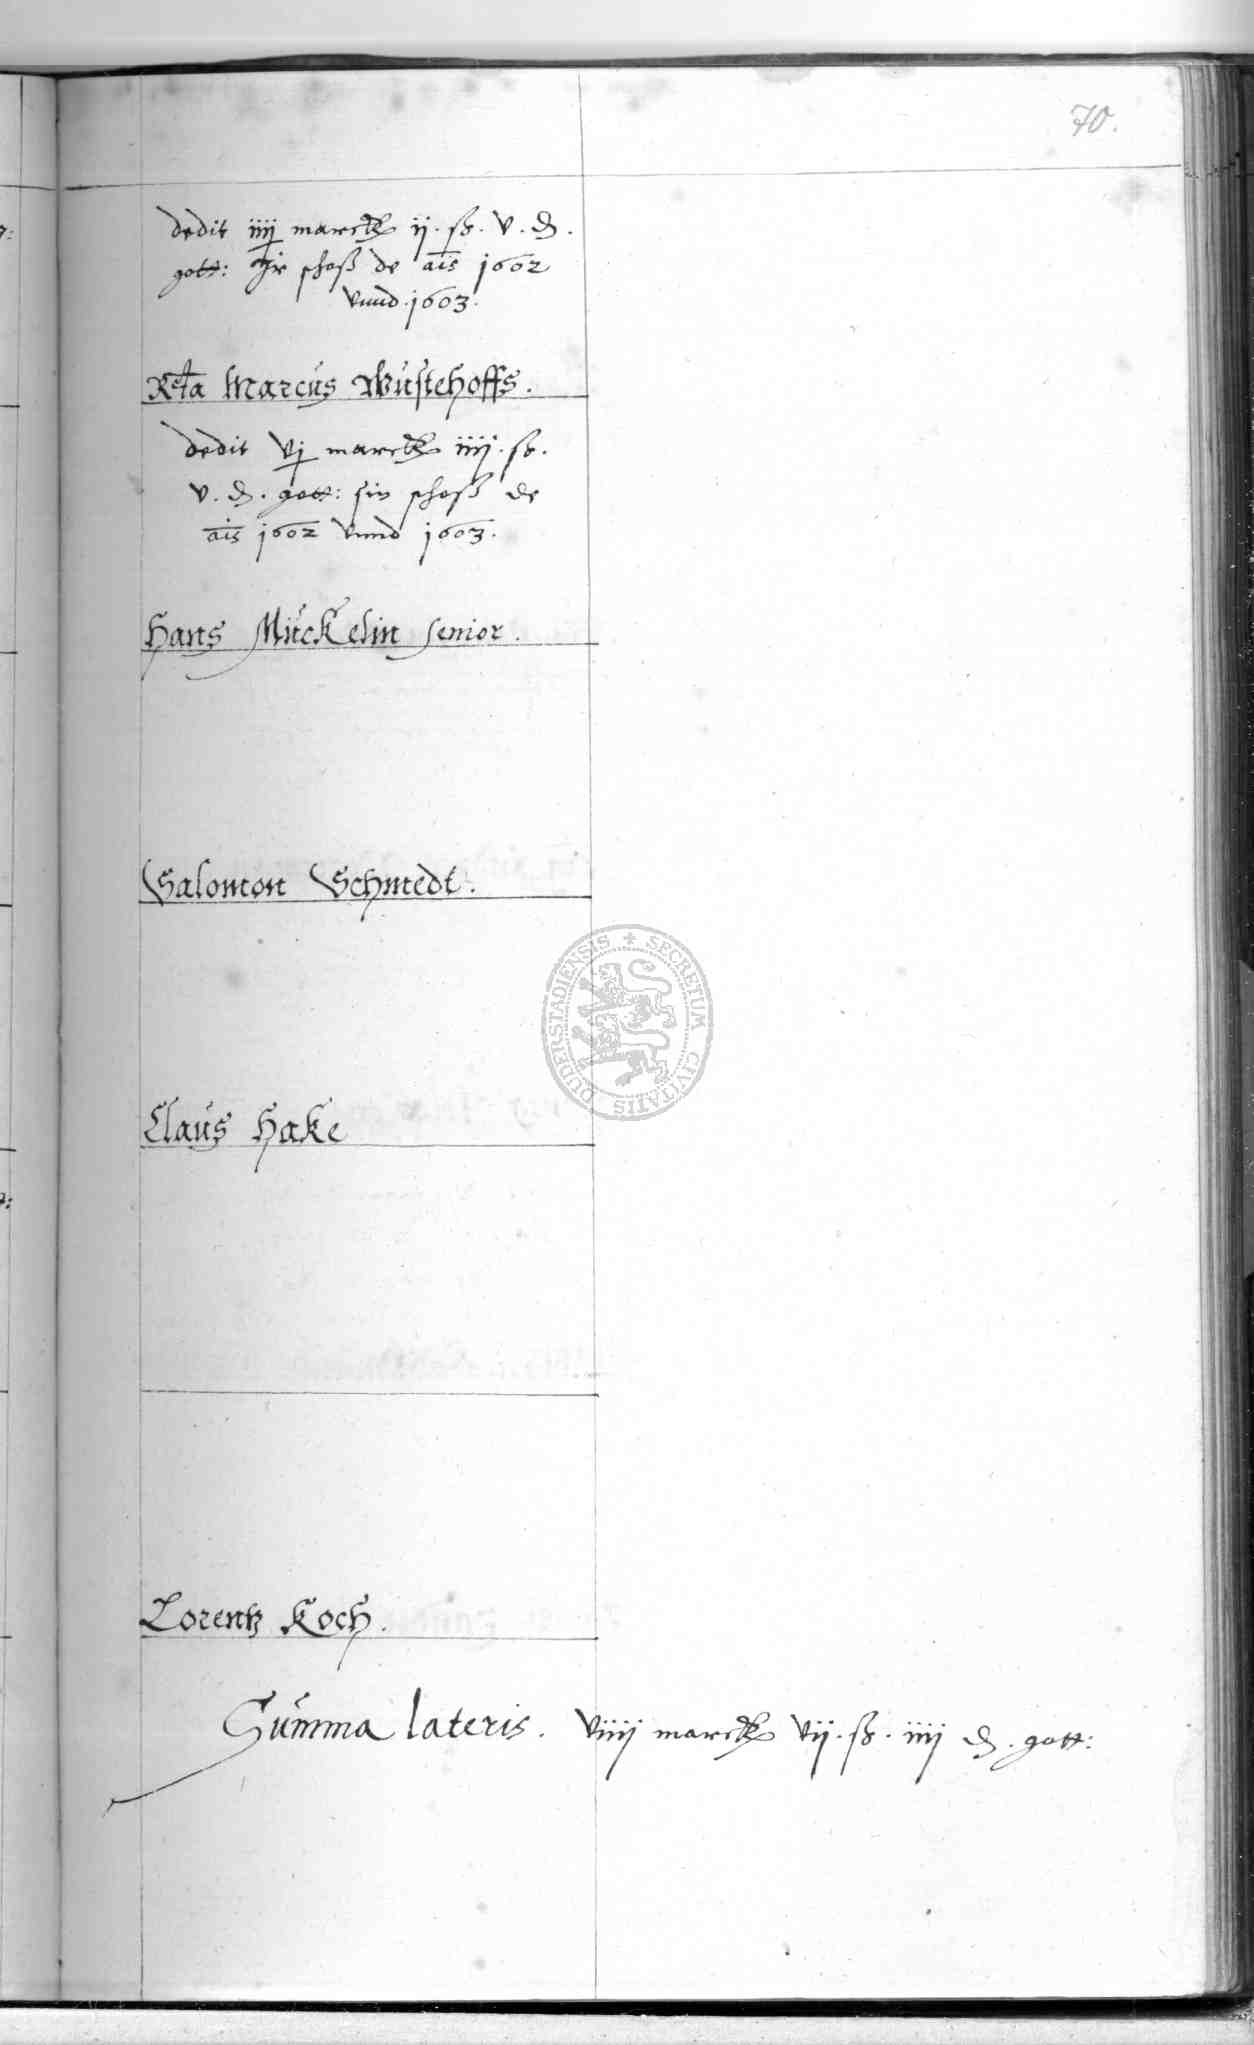 70.
dedit iiij marck ij. ß. v. d.
gott: Ihr schoß de ais 1602
vnnd. 1603.
Rcta Marcus Wüstehoffs.
dedit vj marck iiij. ß.
v. d. gott: sin schoß de
ais 1602 vnnd 1603.
Hans Mückelin senior.
Salomon Schmedt.
Claus Hake
SECRETUM CIVITATIS DUDERSTADIENSIS
Lorentz Koch.
Summa lateris. viiij marck vij. ß. iiij d. gott: